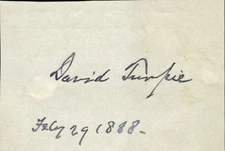 David Turpie
Feby 29 1888-